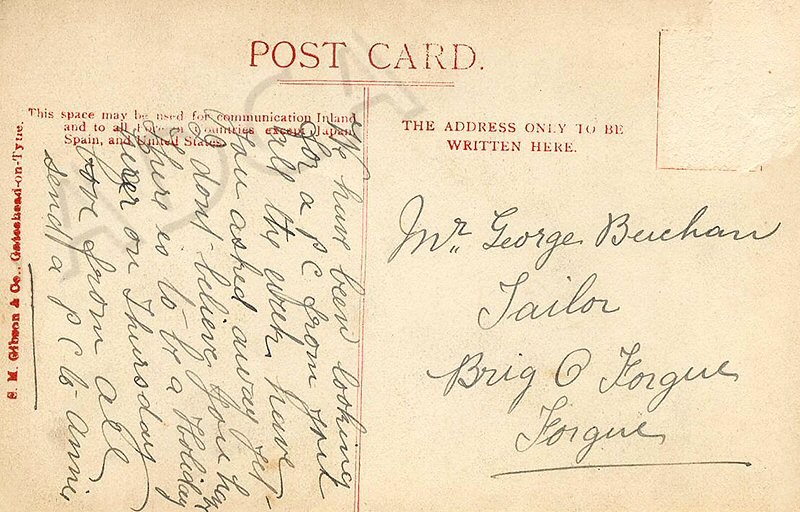 POST CARD.
This space may be used for communication Inland
and to all Foreign Countries except Japan,
Spain, and United States.
THE ADDRESS ONLY TO BE
WRITTEN HERE.
S. M. Gibson & Co., Gateshead-on-Tyne.
We have been looking
for a p c from you
all the week have
you asked away yet-
I dont believe you ha
there is to be a Holiday
here on Thursday
love from all
send a p c to Annie
Mr. George Buchan
Tailor
Brig O Forgue
Forgue